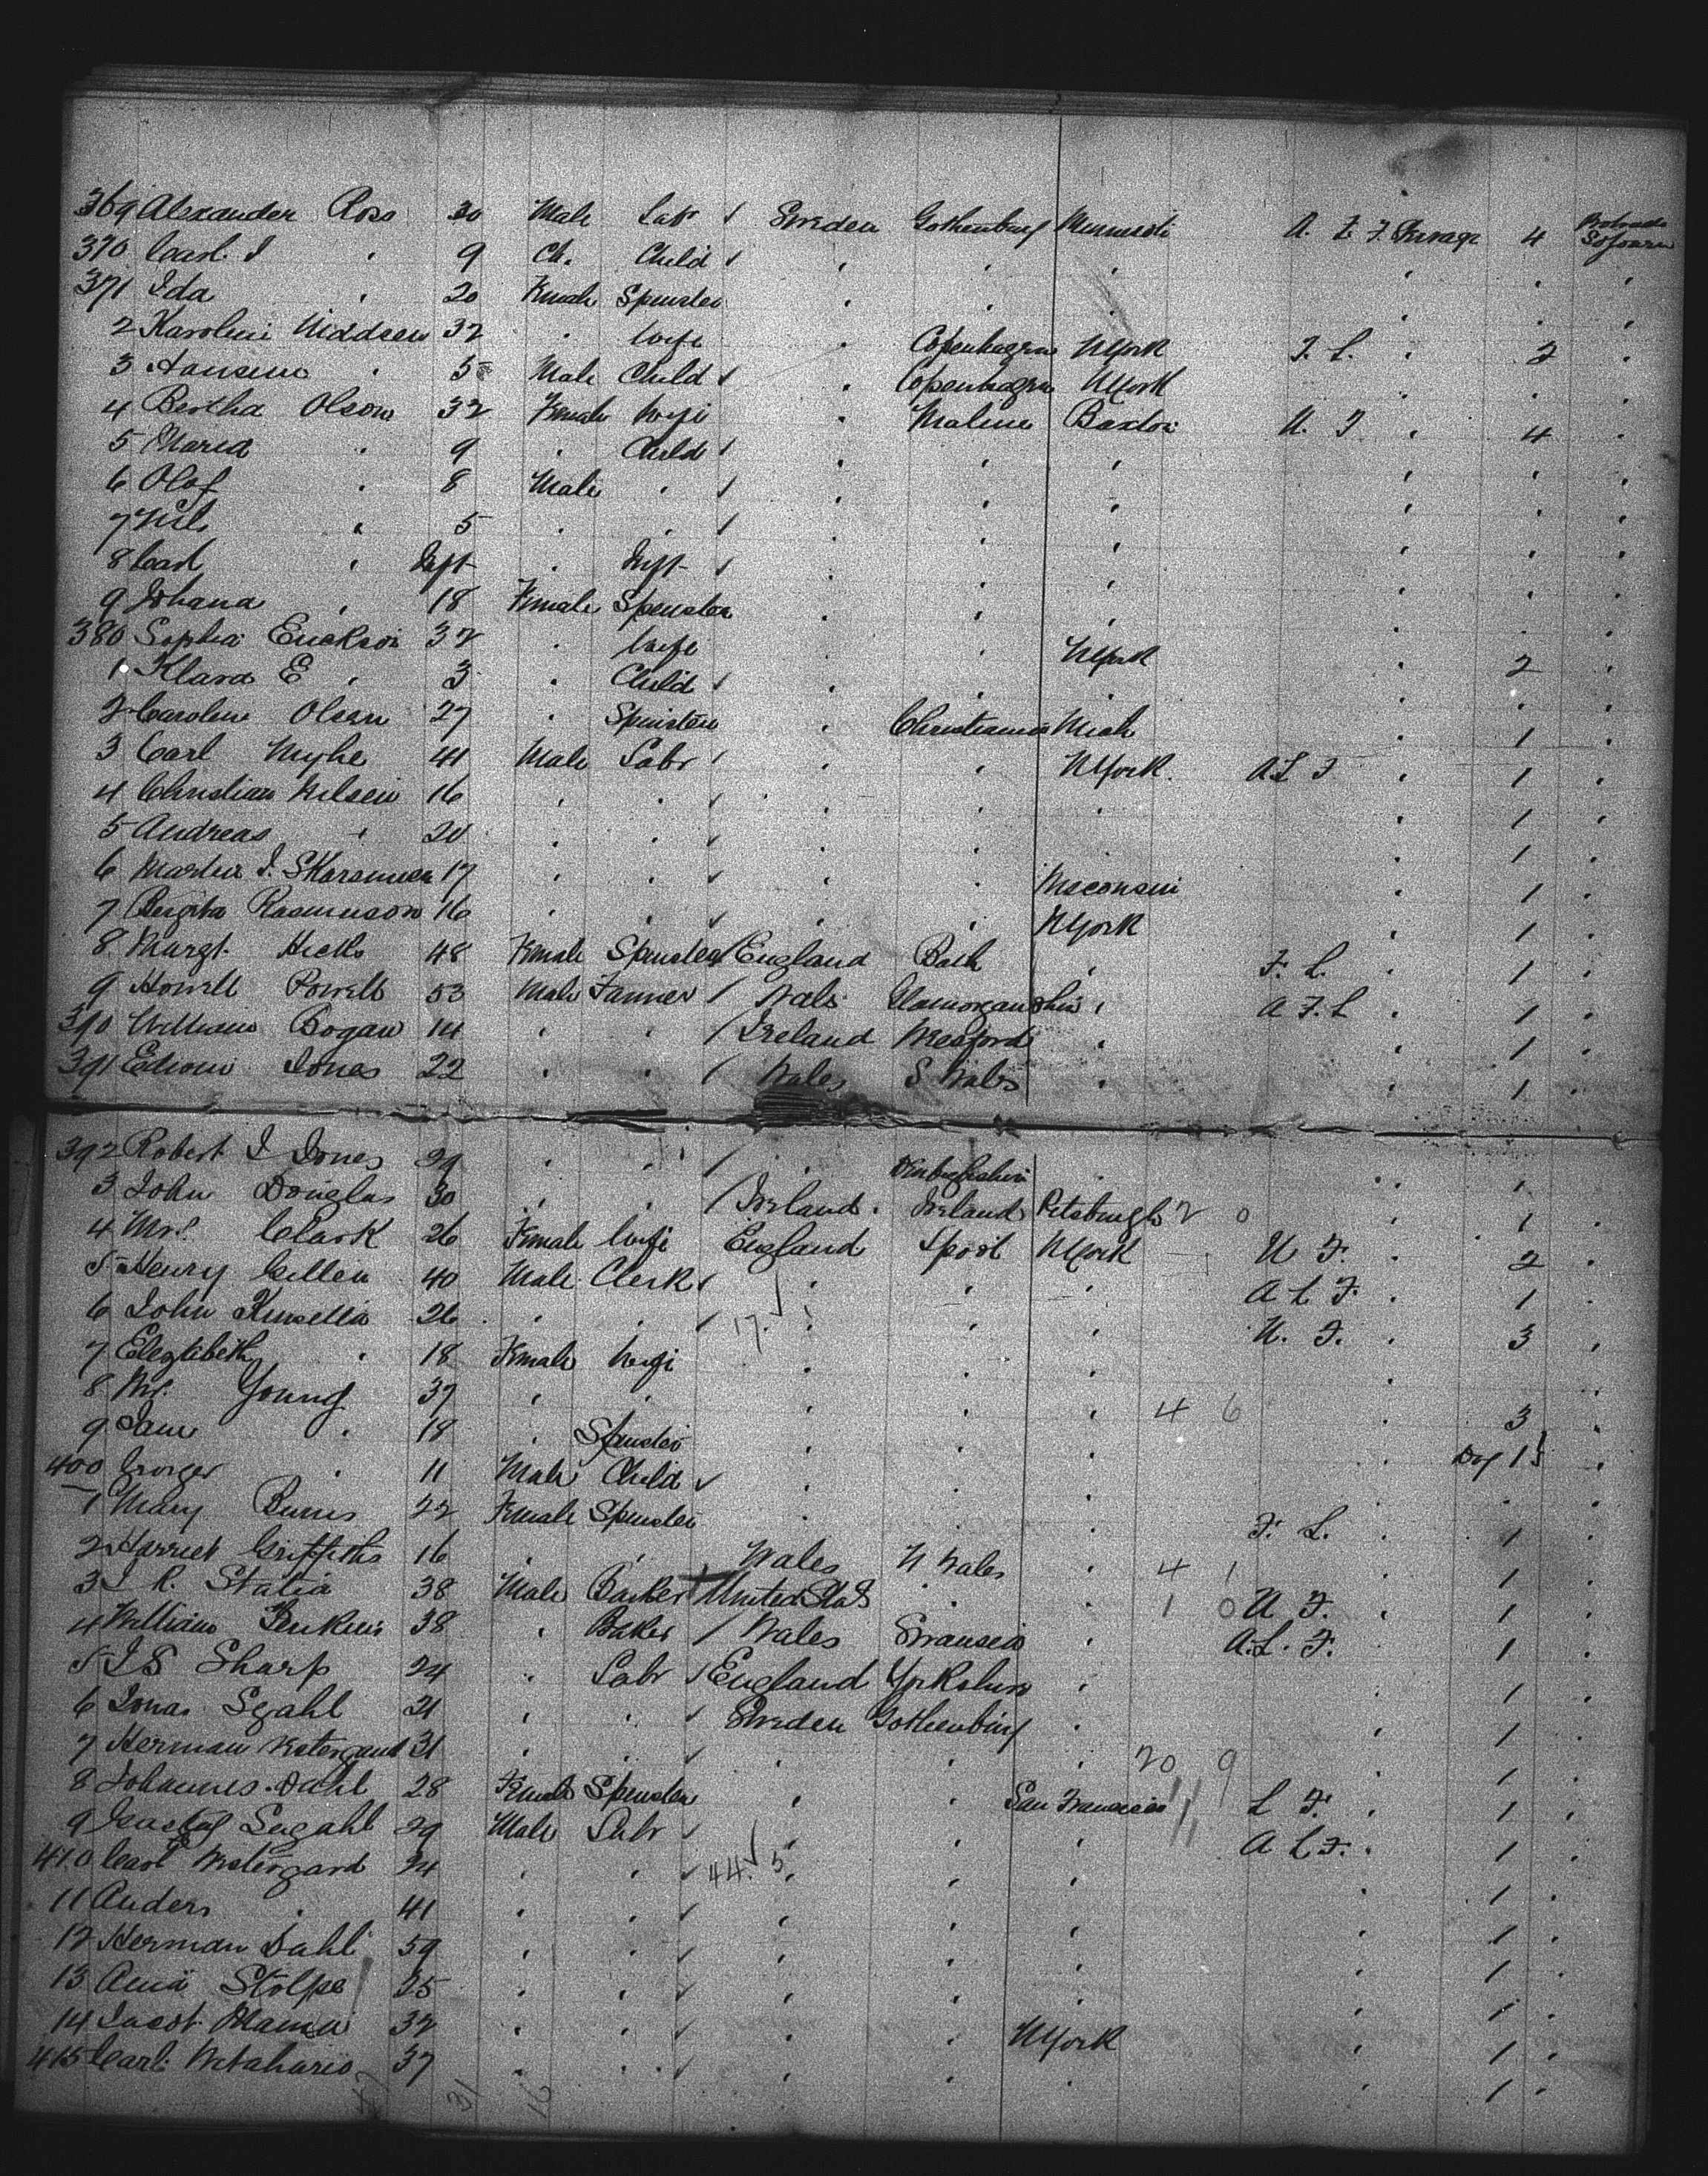 369 Alexander Ross 30 Male Labr ✓ Sweden Gothenburg Minnesota A. L. F. Steerage 4 Protracted Sojourn
370 Carl J " 9 Ch. Child ✓ " " " " " "
371 Ida " 20 Female Spinster " " " " " "
2 Karolini 32 " Wife " Copenhagen NYork F. L. " 2 "
3 " 5 Male Child ✓ " Copenhagen NYork " " "
4 Bertha Olson 32 Female Wife " Malmo U. F. " 4 "
5 Maria " 9 " Child ✓ " " " " " "
6 Olof " 8 Male " ✓ " " " " " "
7 Nils " 5 " " ✓ " " " " " "
8 Carl " Inft " Inft ✓ " " " " " "
9 Johana " 18 Female Spinster " " " " " "
380 Sophia Erickson 32 " Wife " " NYork " 2 "
1 Klara E " 3 " Child ✓ " " " " " "
2 Carolin Olsen 27 " Spinster " Christiania Mich " 1 "
3 Carl Myhe 41 Male Labr ✓ " " NYork. A L F " 1 "
4 Christian Nilsen 16 " " ✓ " " " " 1 "
5 Andreas " 20 " " ✓ " " " " 1 "
6 Martin J. 17 " " ✓ " " Wisconsin " 1 "
7 Rasmuson 16 " " ✓ " " NYork " 1 "
8 Margt. Hicks 48 Female Spinster ✓ England Bath " F. L. " 1 "
9 Howell Powell 53 Male Farmer / Wales Glamorganshire " A F. L " 1 "
390 William Bogan 14 " " / Ireland Wexford " " 1 "
391 Edwin Jones 22 " " / Wales S Wales " " 1 "
392 Robert J Jones 29 " " / " Denbighshire " " 1
3 John Douglas 30 " " / Ireland Ireland Pitsburgh 2 0 " 1 "
4 Mrs. Clark 26 Female Wife England Lpool NYork U F. " 2 "
5 Henry Cullen 40 Male Clerk ✓ " " " A L F. " 1 "
6 John Kinsella 26 " " / 17. ✓ " " " U. F. " 3 "
7 Elezabeth " 18 Female Wife " " " " " "
8 Mrs. Young 37 " " " " " 4 6 " 3 "
9 Jane " 18 " Spinster " " " " 1 "
400 George " 11 Male Child ✓ " " " " " "
1 Mary Burns 22 Female Spinster " " " F. L. " 1 "
2 Harriet Griffiths 16 " " Wales N Wales " 4 1 " 1 "
3 J R. Stalia 38 Male + United Stas " " 1 0 U F. " 1 "
4 William Jenkins 38 " Baker / Wales Swansea " A. L. F. " 1 "
5 J S Sharp 24 " Labr ✓ England Yorkshire " " 1 "
6 Jonas Segahl 21 " " ✓ Sweden Gothenburg " " 1 "
7 Herman 31 " " ✓ " " " 20 9 " 1 "
8 Johannes Dahl 28 Female Spinster " " San Francisco 11 L F. " 1 "
9 Gustaf Segahl 29 Male Labr ✓ " " " A L F. " 1 "
410 Carl Westergard 24 " " ✓ 44. ✓ 5 " " " " 1 "
11 Anders " 41 " " ✓ " " " " 1 "
12 Herman Dahl 59 " " ✓ " " " " 1 "
13 Stolpe 25 " " ✓ " " " " 1 "
14 Jacob 32 " " ✓ " " NYork " 1 "
415 Carl 37 " " ✓ " " " " 1 "
31 16